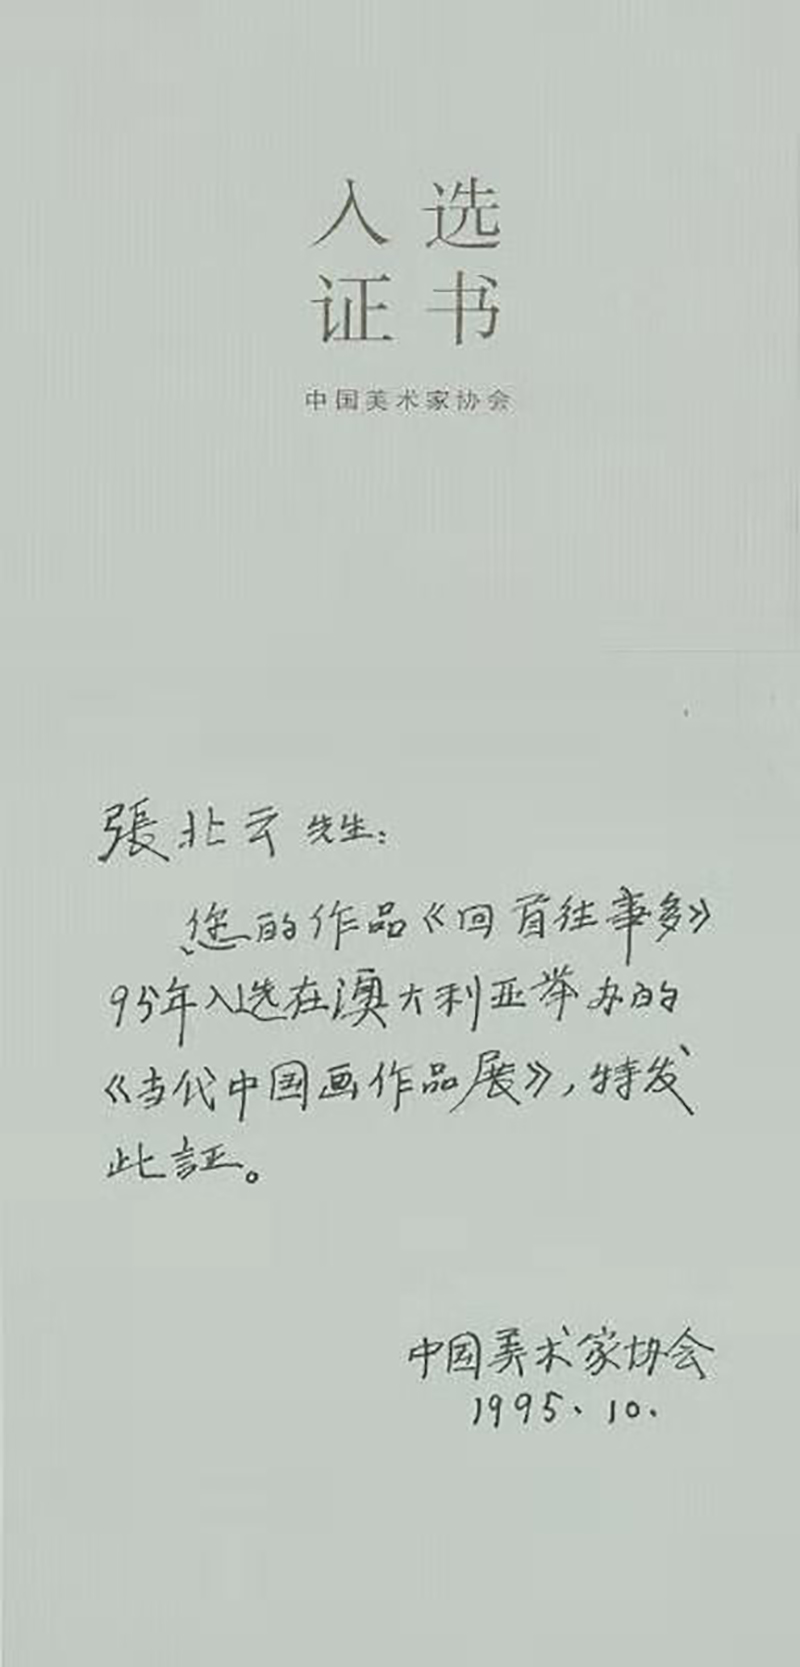 入选
证书
中国美术家协会
張北云先生：
您的作品《回首往事多》
95年入选在澳大利亚举办的
《当代中国画作品展》，特发
此証。
中国美术家协会
1995、10.